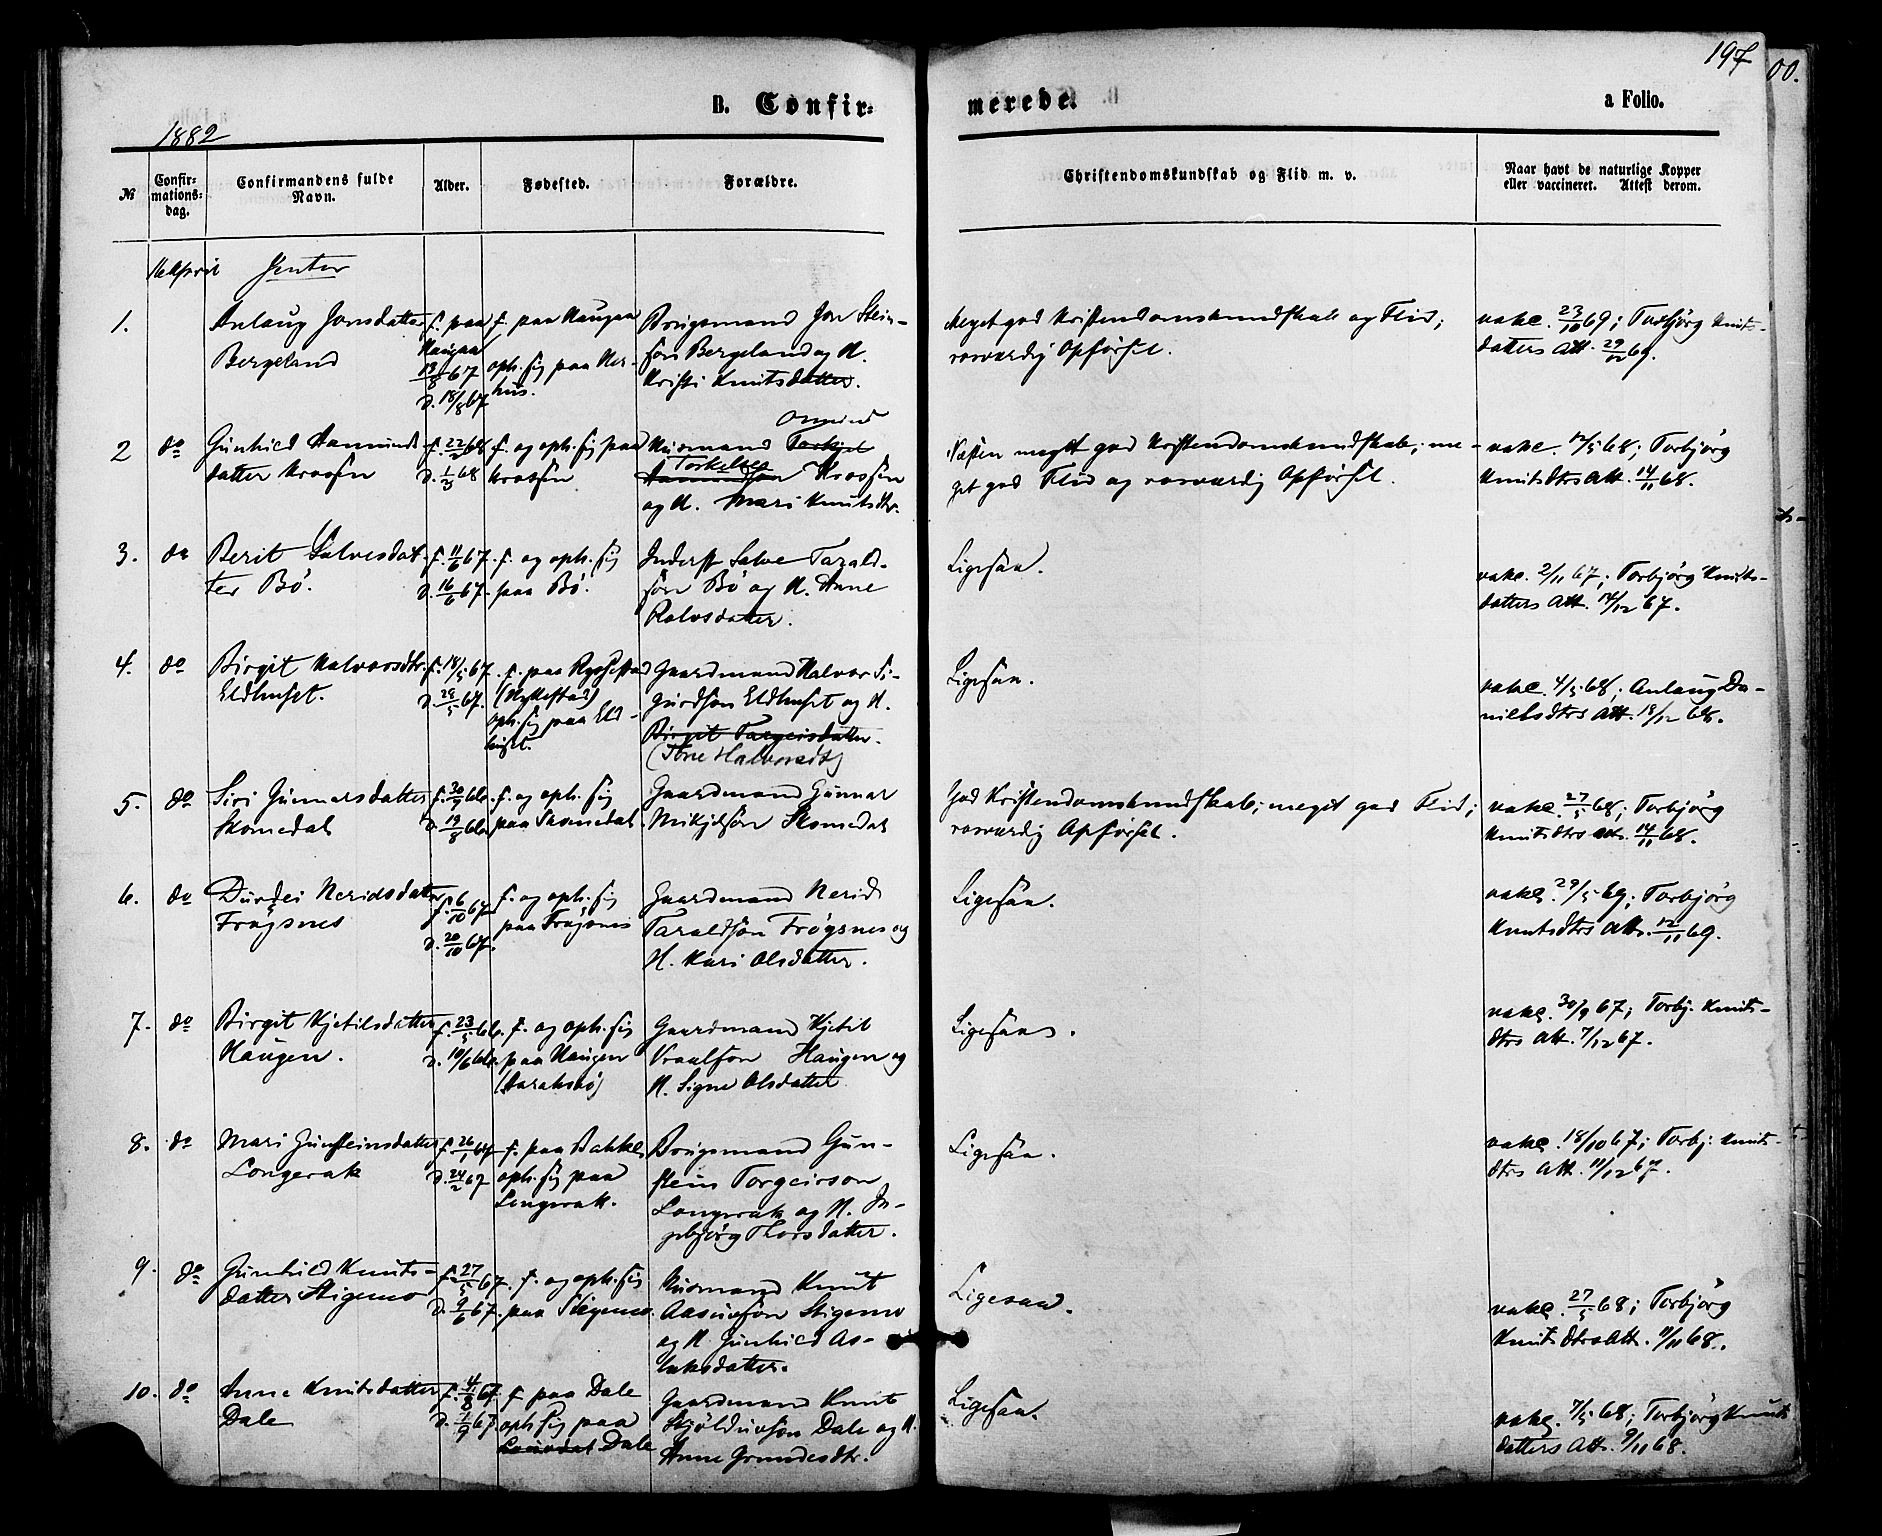 197
00.
B. Confir-
merede.
a Folio.
1882
№
Confir-
mations-
dag.
Confirmandens fulde
Navn.
Alder.
Fødested.
Forældre.
Christendomskundskab og Flid m. v.
Naar havt de naturlige Kopper
eller vaccineret. Attest derom.
16 April
Jenter
1.
Anlaug Jonsdatter
Bergeland
f. paa
Haugaa
13/8 67
d. 18/8 67
f. paa Haugaa
oph. sig paa Ner-
hus.
Brugsmand Jon Stein-
sön Bergeland og H.
Kristi Knutsdatter.
Meget god Kristendomskundskab og Flid;
rosværdig Opförsel.
vake. 23/10 69; Torbjörg Knuts-
datters Att. 29/12 69.
2
do
Gunhild Aamunds-
datter Krossen
f. 22/2 68
d. 1/3 68
f. og oph. sig paa
Krossen
Omund
Husmand Torkjel
Torkelsen
Aamundsön Krossen
og H. Mari Knutsdtr.
Næsten meget god Kristendomskundskab; me-
get god Flid og rosværdig Opförsel.
vake. 12/5 68; Torbjörg
Knutsdtrs Att. 14/11 68.
3.
do
Berit Salvesdat-
ter Bö.
f. 11/6 67.
d. 16/6 67.
f. og oph. sig
paa Bö.
Inderst Salve Tarald-
sön Bö og H. Anne
Rolvsdatter.
Ligesaa.
vake. 2/11 67; Torbjörg Knuts-
datters Att. 14/12 67.
4.
do
Birgit Halvorsdtr.
Eldhuset.
f. 18/5 67.
d. 29/5 67.
f. paa Rygestad
(Rykestad)
oph. sig paa Eld-
huset.
Gaardmand Halvor Si-
gurdsön Eldhuset og H.
Birgit Targeirsdatter.
(Tone Halvorsdt)
Ligesaa.
vake. 4/5 68; Anlaug Da-
nielsdtrs Att. 18/12 68.
5.
do
Siri Gunnarsdatter
Skomedal
f. 30/7 66.
d. 19/8 66.
f. og oph. sig
paa Skomedal.
Gaardmand Gunnar
Mikjelsön Skomedal
God Kristendomskundskab; meget god Flid;
rosværdig Opförsel.
vake. 27/5 68; Torbjörg
Knutsdtrs att. 14/11 68.
6.
do
Durdei Neridsdatter
Frögsnes
f. 6/10 67
d. 20/10 67.
f. og oph. sig
paa Frögsnes
Gaardmand Nerid
Taraldsön Frögsnes og
H. Kari Olsdatter.
Ligesaa.
vake. 29/5 69; Torbjörg
Knutsdtrs Att. 12/11 69.
7.
do
Birgit Kjetilsdatter
Haugen.
f. 23/5 66.
d. 10/6 66.
f. og oph. sig
paa Haugen
(Aaraksbö)
Gaardmand Kjetil
Vraalson Haugen og
H. Signe Olsdatter
Ligesaa.
vake. 30/9 67; Torbj. Knuts-
dtrs Att. 7/12 67.
8.
do
Mari Gunsteinsdatter
Longerak
f. 26/1 67
d. 24/2 67
f. paa Bakke
oph. sig paa
Longerak.
Brugsmand Gun-
stein Torgeirson
Longerak og H. In-
gebjörg Thorsdatter.
Ligesaa.
vake. 18/10 67; Torbj. Knuts-
dtrs Att. 11/12 67.
9.
do
Gunhild Knuts-
datter Stigemo
f. 27/5 67.
d. 9/6 67.
f. og oph. sig
paa Stigemo.
Husmand Knut
Aasulfsön Stigemo
og H. Gunhild As-
laksdatter.
Ligesaa.
vake. 27/5 68; Torbjörg
Knutsdtrs Att. 11/11 68.
10.
do
Anne Knutsdatter
Dale
f. 4/8 67
d. 1/9 67
f. paa Dale
oph. sig paa
Dale
Gaardmand Knut
Skjöldulvsön Dale og H.
Anne Gundersdtr.
Ligesaa.
vake. 7/5 68; Torbjörg Knuts
datters Att. 9/11 68.